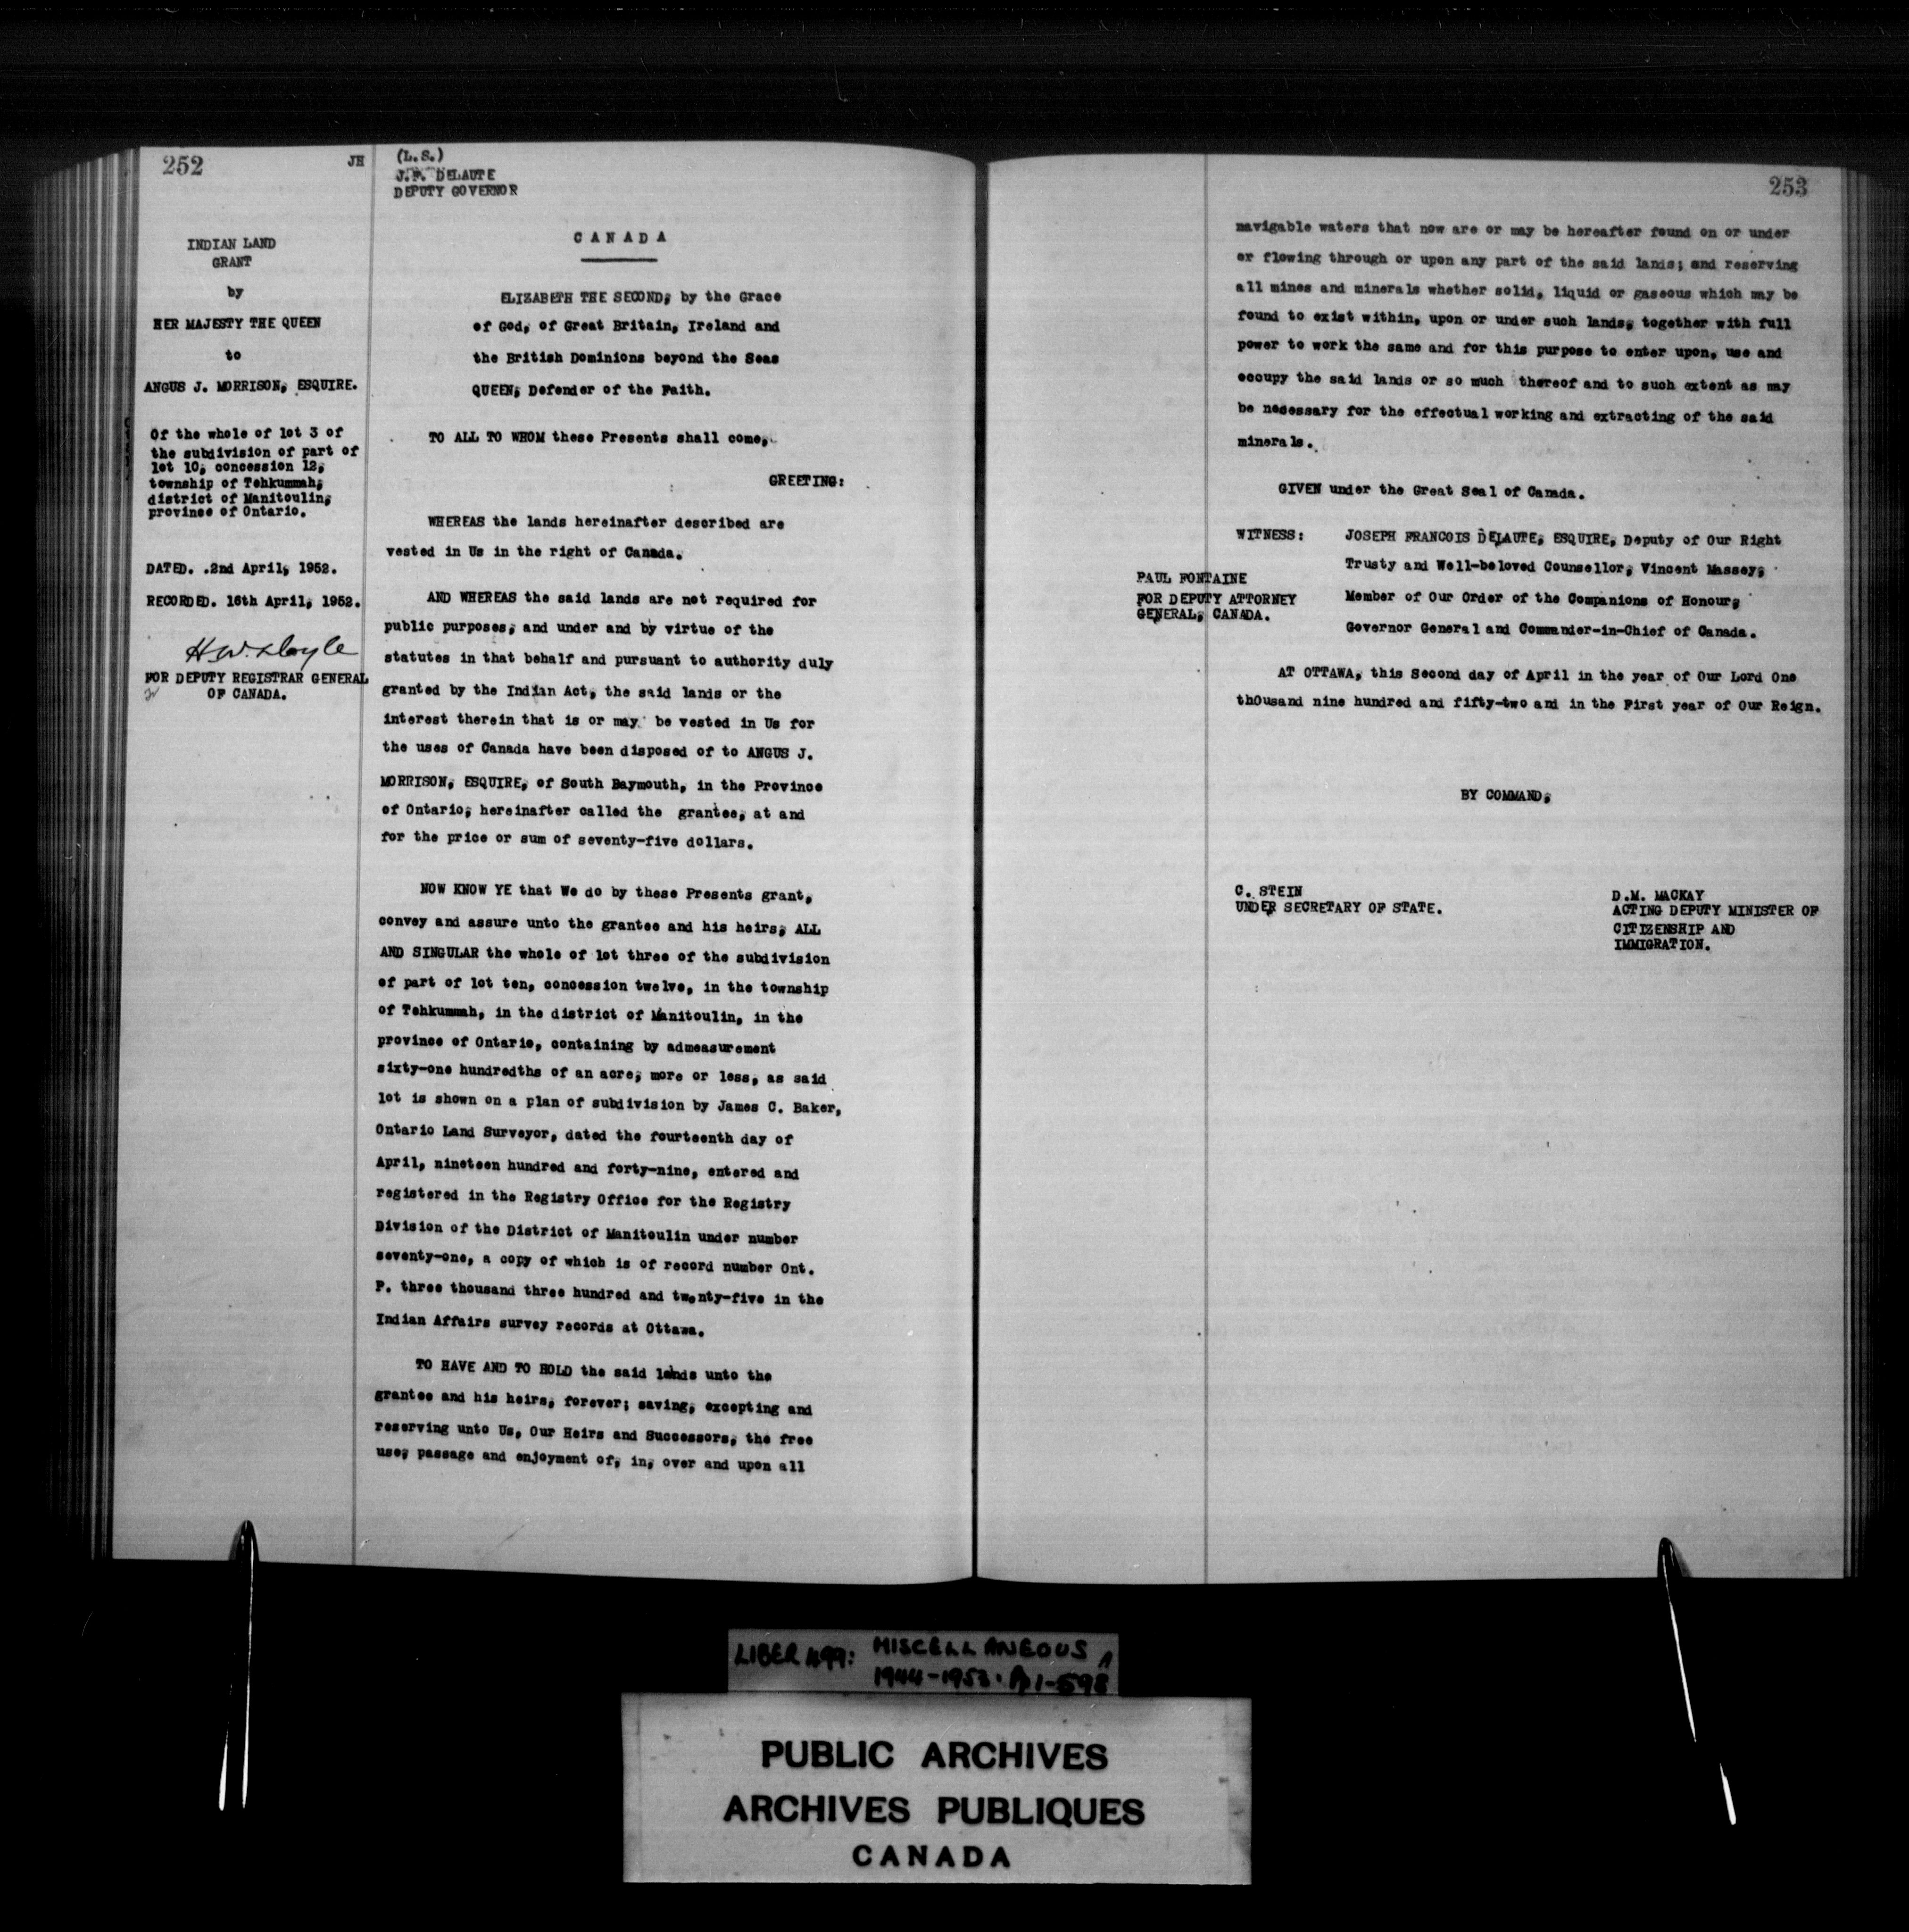 252
JH
INDIAN LAND
GRANT
by
HER MAJESTY THE QUEEN
to
ANGUS J. MORRISON, ESQUIRE.
Of the whole of lot 3 of
the subdivision of part of
lot 10, concession 12,
township of Tehkummah,
district of Manitoulin,
province of Ontario.
DATED. .2nd April, 1952.
RECORDED. 16th April, 1952.
H.W. Doyle
FOR DEPUTY REGISTRAR GENERAL
OF CANADA.
(L.S.)
J.F. DELAUTE
DEPUTY GOVERNOR
C A N A D A
ELIZABETH THE SECOND, by the Grace
of God, of Great Britain, Ireland and
the British Dominions beyond the Seas
QUEEN, Defender of the Faith.
TO ALL TO WHOM these Presents shall come,
GREETING:
WHEREAS the lands hereinafter described are
vested in Us in the right of Canada.
AND WHEREAS the said lands are not required for
public purposes, and under and by virtue of the
statutes in that behalf and pursuant to authority duly
granted by the Indian Act, the said lands or the
interest therein that is or may be vested in Us for
the uses of Canada have been disposed of to ANGUS J.
MORRISON, ESQUIRE, of South Baymouth, in the Province
of Ontario, hereinafter called the grantee, at and
for the price or sum of seventy-five dollars.
NOW KNOW YE that We do by these Presents grant,
convey and assure unto the grantee and his heirs, ALL
AND SINGULAR the whole of lot three of the subdivision
of part of lot ten, concession twelve, in the township
of Tehkummah, in the district of Manitoulin, in the
province of Ontario, containing by admeasurement
sixty-one hundredths of an acre, more or less, as said
lot is shown on a plan of subdivision by James C. Baker,
Ontario Land Surveyor, dated the fourteenth day of
April, nineteen hundred and forty-nine, entered and
registered in the Registry Office for the Registry
Division of the District of Manitoulin under number
seventy-one, a copy of which is of record number Ont.
P. three thousand three hundred and twenty-five in the
Indian Affairs survey records at Ottawa.
TO HAVE AND TO HOLD the said lands unto the
grantee and his heirs, forever; saving, excepting and
reserving unto Us, Our Heirs and Successors, the free
use, passage and enjoyment of, in, over and upon all
253
navigable waters that now are or may be hereafter found on or under
or flowing through or upon any part of the said lands; and reserving
all mines and minerals whether solid, liquid or gaseous which may be
found to exist within, upon or under such lands, together with full
power to work the same and for this purpose to enter upon, use and
occupy the said lands or so much thereof and to such extent as may
be necessary for the effectual working and extracting of the said
minerals.
GIVEN under the Great Seal of Canada.
WITNESS: JOSEPH FRANCOIS DELAUTE, ESQUIRE, Deputy of Our Right
Trusty and Well-beloved Counsellor, Vincent Massey,
Member of Our Order of the Companions of Honour,
Governor General and Commander-in-Chief of Canada.
PAUL FONTAINE
FOR DEPUTY ATTORNEY
GENERAL, CANADA.
AT OTTAWA, this Second day of April in the year of Our Lord One
thOusand nine hundred and fifty-two and in the First year of Our Reign.
BY COMMAND,
C. STEIN
UNDER SECRETARY OF STATE.
D.M. MACKAY
ACTING DEPUTY MINISTER OF
CITIZENSHIP AND
IMMIGRATION.
LIBER 499: MISCELLANEOUS
1944-1953. Pp 1-598
PUBLIC ARCHIVES
ARCHIVES PUBLIQUES
CANADA